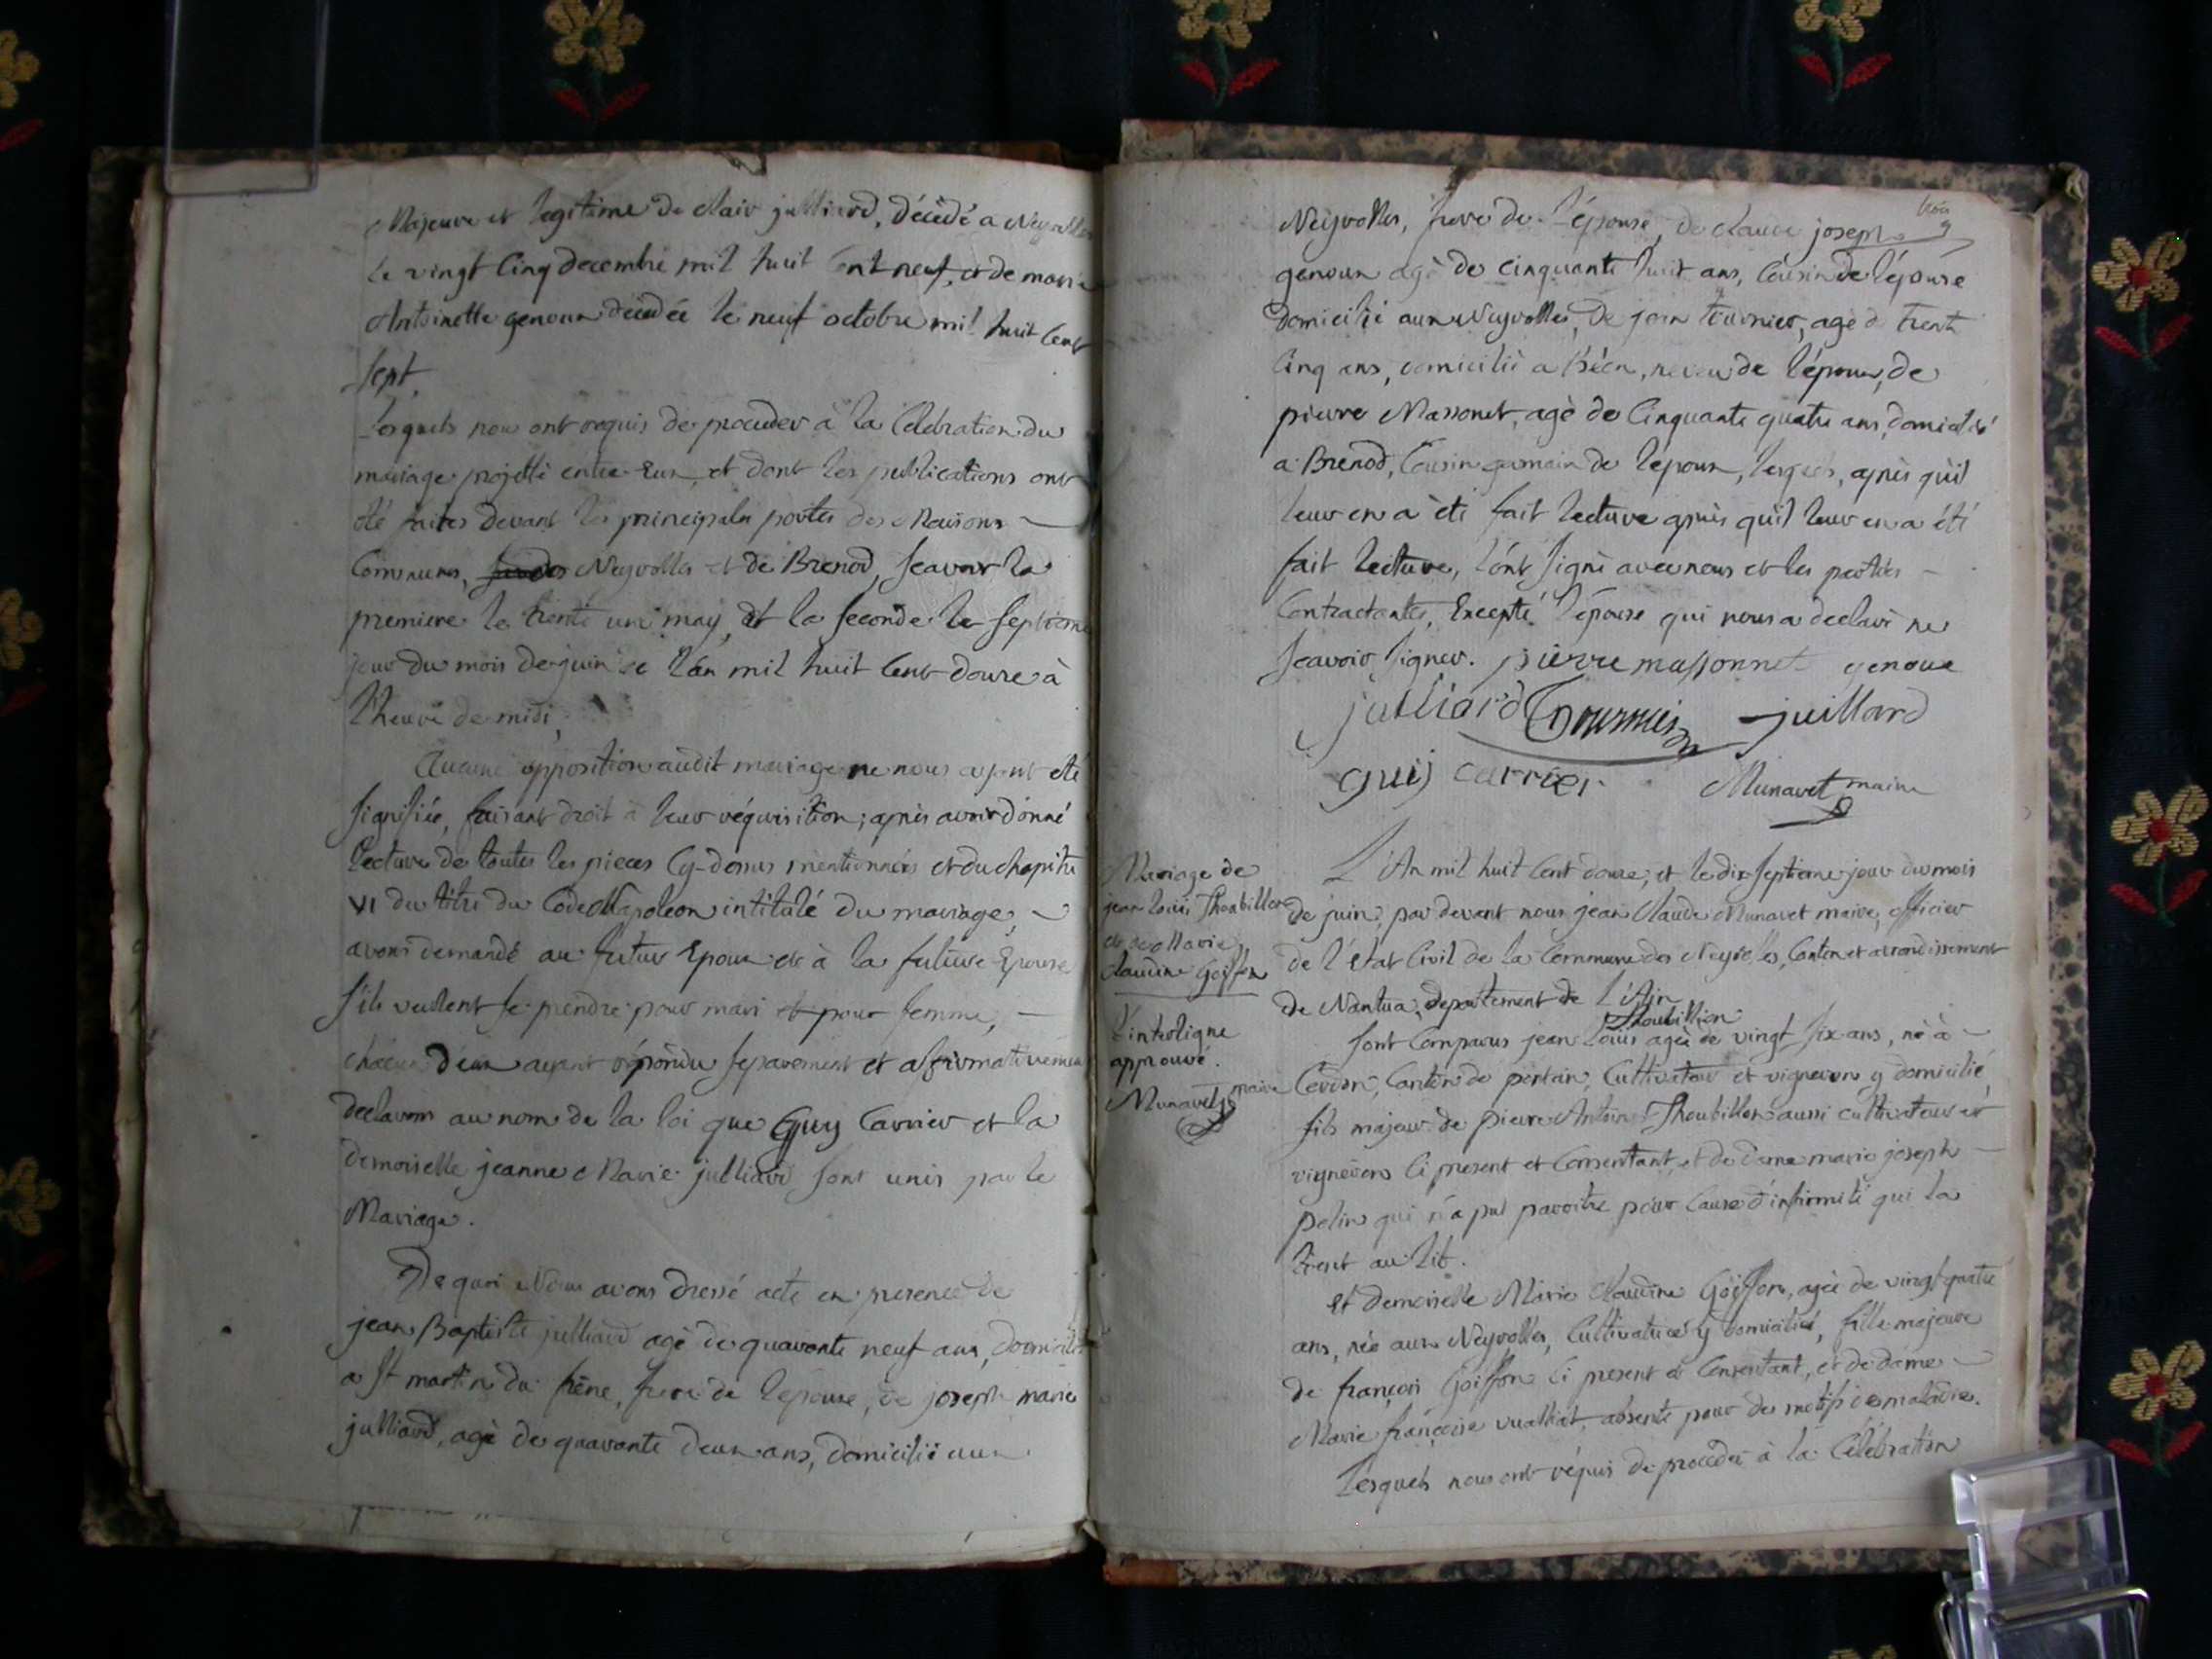 Majeure et legitime de Clair julliard, décédé a Neyrolles
le vingt Cinq decembre mil huit Cent neuf, et de marie
Antoinette genoux décedée le neuf octobre mil huit Cent
sept.
Lesquels nous ont requis de proceder à la Célébration du
mariage projetté entre Eux, et dont les publications ont
été faites devant les principales portes des Maisons
Communes, Neyrolles et de Brenod, Scavoir la
premiere le trente un may, et la seconde le septieme
jour du mois de juin de l'an mil huit Cent douze à
l'heure de midi,
Aucune opposition audit mariage ne nous ayant été
signifiée, faisant droit à leur réquisition; après avoir donné
lecture de toutes les pieces Cy-dessus mentionnées et du chapitre
VI du titre du Code Napoleon intitulé du mariage,
avons demandé au futur Epoux et à la future Epouse
s'ils veullent se prendre pour mari et pour femme,
chacun d'eux ayant répondu separement et affirmativement
declarons au nom de la loi que Guy Carrier et la
demoiselle jeanne Marie julliard sont unis par le
Mariage.
De quoi Nous avons dressé acte en presence de
jean Baptiste julliard agé de quarante neuf ans, domicilié
a St martin du frêne, frere de l'epouse, de joseph marie
julliard, agé de quarante deux ans, domicilié aux
trois
Neyrolles, frere de l'épouse, de claude joseph
genoux agé de cinquante huit ans, Cousin de l'épouse
domicilié aux Neyrolles, de jean tournier, agé d trente
Cinq ans, domicilié a, neveu de l'époux, de
pierre Massonet, agé de Cinquante quatre ans, domicilié
a Brenod, Cousin germain de l'époux, lesquels, après qu'il
leur en a été fait lecture après qu'il leur en a été
fait lecture, l'ont signé avec nous et les parties
Contractantes, Excepté l'épouse qui nous a declaré ne
Scavoir signer. pierre massonnet genoux
julliard Tournier juillard
guij carrier Munavet maire
Mariage de
jean Louis Thoubillon
et de Marie
Claudine Goiffon
L'interligne
approuvé.
Munavet maire
L'An mil huit Cent douze, et le dix septieme jour du mois
de juin, par devant nous jean Claude Munavet maire, officier
de l'état Civil de la Commune des Neyrolles, Canton et arrondissement
de Nantua, departement de L'Ain
Thoubillon
Sont Comparus jean Louis agée de vingt six ans, né à
Cerdon, Canton de poncin, Cultivateur et vigneron y domicilié,
fils majeur de pierre Antoine Thoubillon aussi cultivateur et
vignerons Ci present et Consentant, et de dame marie joseph
polin qui n'a put paroitre pour Cause d'infirmité qui la
tient au lit.
Et demoiselle Marie Claudine Goiffon, agée de vingt quatre
ans, née aux Neyrolles, Cultivatrice y domicilié, fille majeure
de françois Goiffon Ci present et Consentant, et de dame
Marie françoise vualliat, absente pour des motifs de maladie.
Lesquels nous ont réquis de proceder à la Célébration